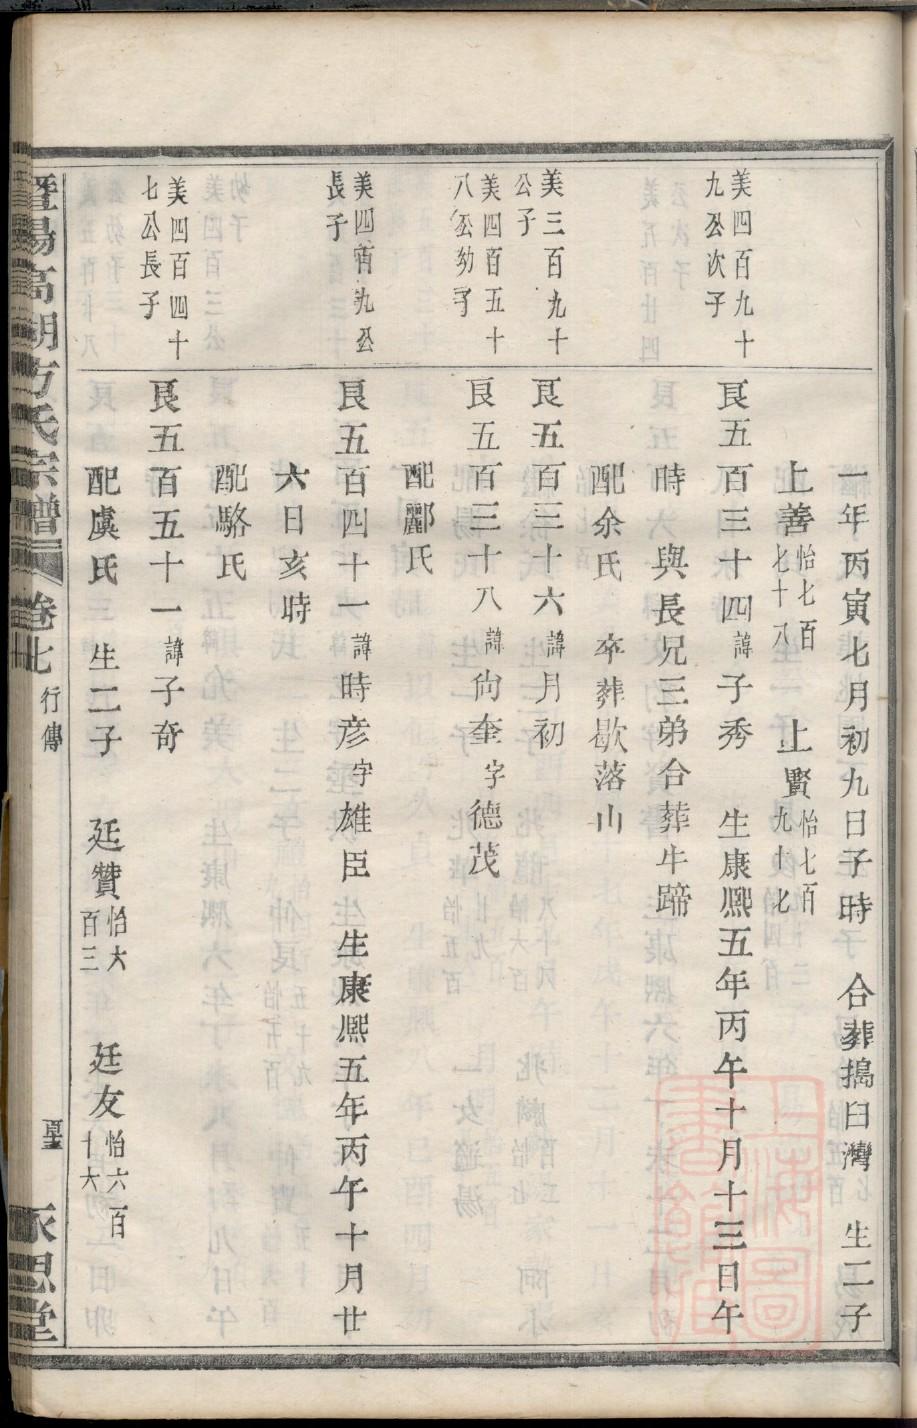 一年丙寅七月初九日子時　合葬搗臼灣　生二子
上善怡七百七十八　上賢怡七百九十七
美四百九十九公次子
良五百三十四諱子秀　生康熙五年丙午十月十三日午
時與長兄三弟合葬牛蹄
配余氏　卒葬歇落山
美三百九十公子
良五百三十六諱月初
美四百五十八公幼子
良五百三十八諱尙奎字德茂
配酈氏
美四百九公長子
良五百四十一諱時彦字雄臣　生康熙五年丙午十月廿
六日亥時
配駱氏
美四百四十七公長子
良五百五十一諱子奇
配虞氏　生二子　廷贊怡六百三　廷友怡六百十六
暨陽高湖方氏宗譜
卷七
行傳
永思堂